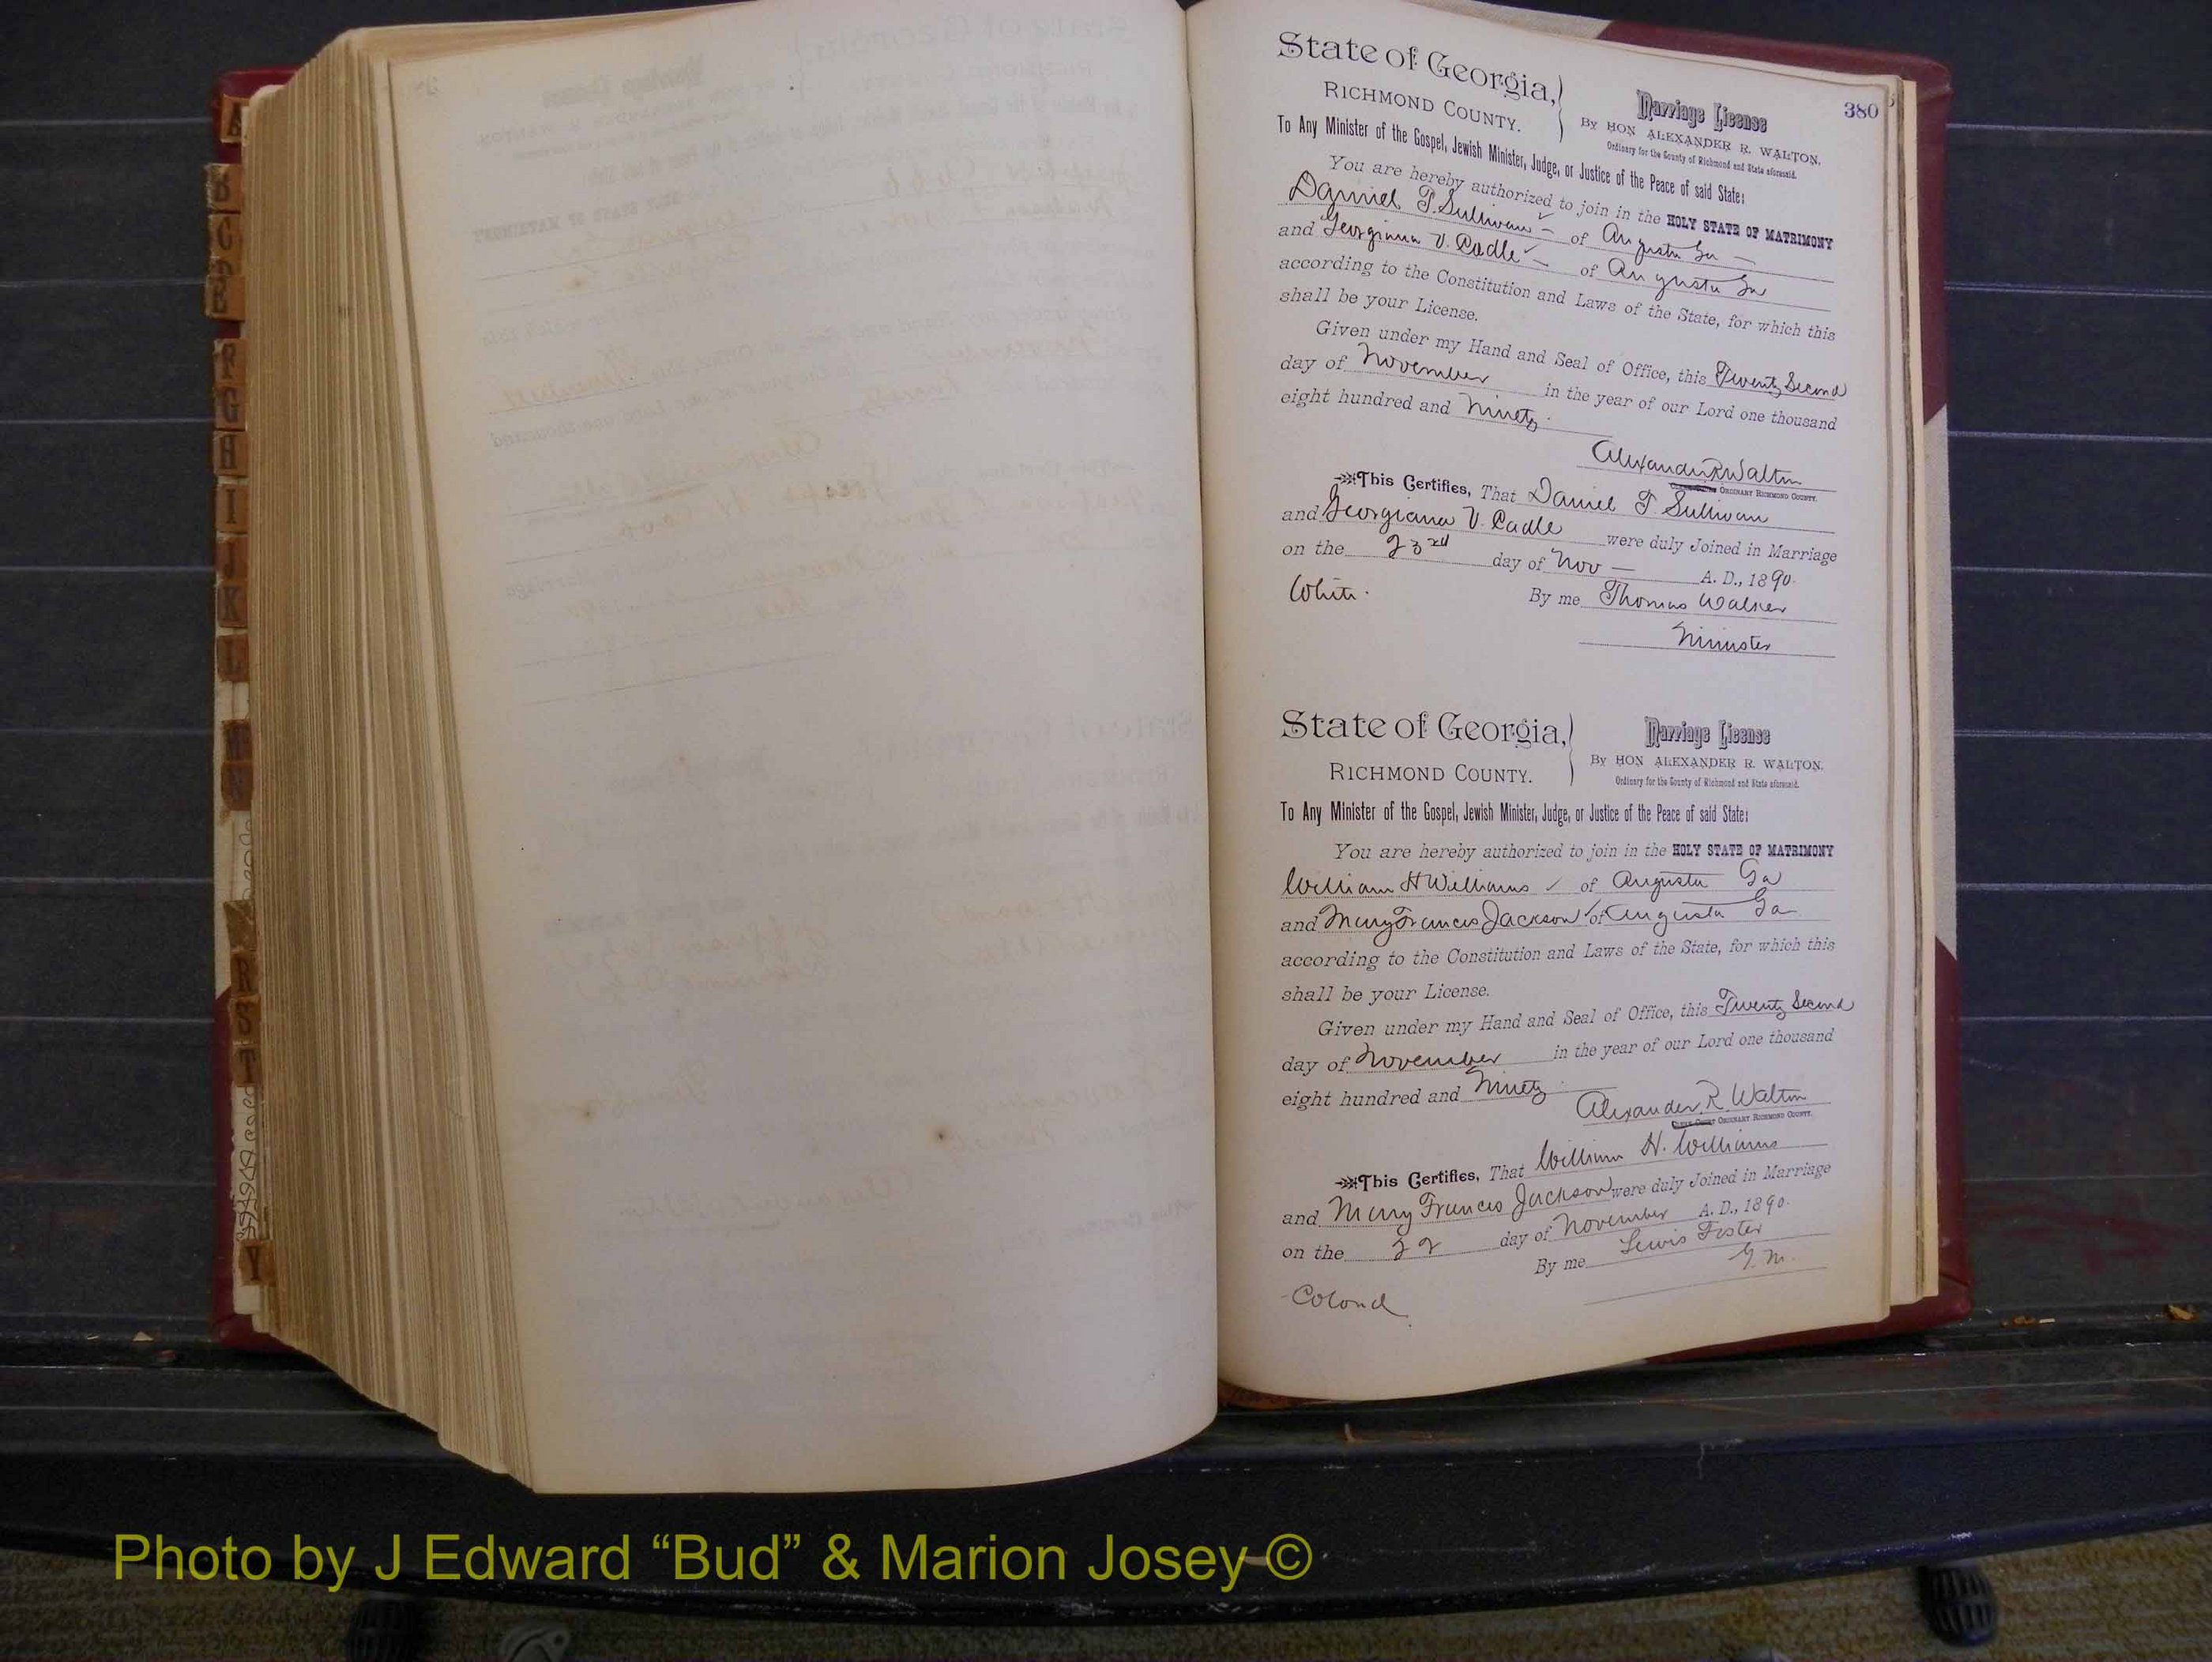 380
State of Georgia,
RICHMOND COUNTY.
Marriage License
By HON ALEXANDER R. WALTON,
Ordinary for the County of Richmond and State aforesaid.
To Any Minister of the Gospel, Jewish Minister, Judge, or Justice of the Peace of said State:
You are hereby authorized to join in the HOLY STATE OF MATRIMONY
Daniel T. Sullivan of Augusta Ga
and Georgiana V. Cadle of Augusta Ga
according to the Constitution and Laws of the State, for which this
shall be your License.
Given under my Hand and Seal of Office, this Twenty Second
day of November in the year of our Lord one thousand
eight hundred and Ninety.
Alexander R Walton
ORDINARY RICHMOND COUNTY.
This Certifies, That Daniel T. Sullivan
and Georgiana V. Cadle were duly Joined in Marriage
on the 23rd day of Nov — A. D., 1890.
White. By me Thomas Walker
Minister
State of Georgia,
RICHMOND COUNTY.
Marriage License
By HON ALEXANDER R. WALTON.
Ordinary for the County of Richmond and State aforesaid.
To Any Minister of the Gospel, Jewish Minister, Judge, or Justice of the Peace of said State:
You are hereby authorized to join in the HOLY STATE OF MATRIMONY
William H Williams of Augusta Ga
and Mary Frances Jackson of Augusta Ga
according to the Constitution and Laws of the State, for which this
shall be your License.
Given under my Hand and Seal of Office, this Twenty Second
day of November in the year of our Lord one thousand
eight hundred and Ninety
Alexander R. Walton
ORDINARY RICHMOND COUNTY.
This Certifies, That William H. Williams
and Mary Frances Jackson were duly Joined in Marriage
on the 22 day of November A. D., 1890.
By me Lewis Foster
Colored
A
B
C
F
G
H
I
J
K
L
M
N
R
S
T
Y
Photo by J Edward “Bud” & Marion Josey ©